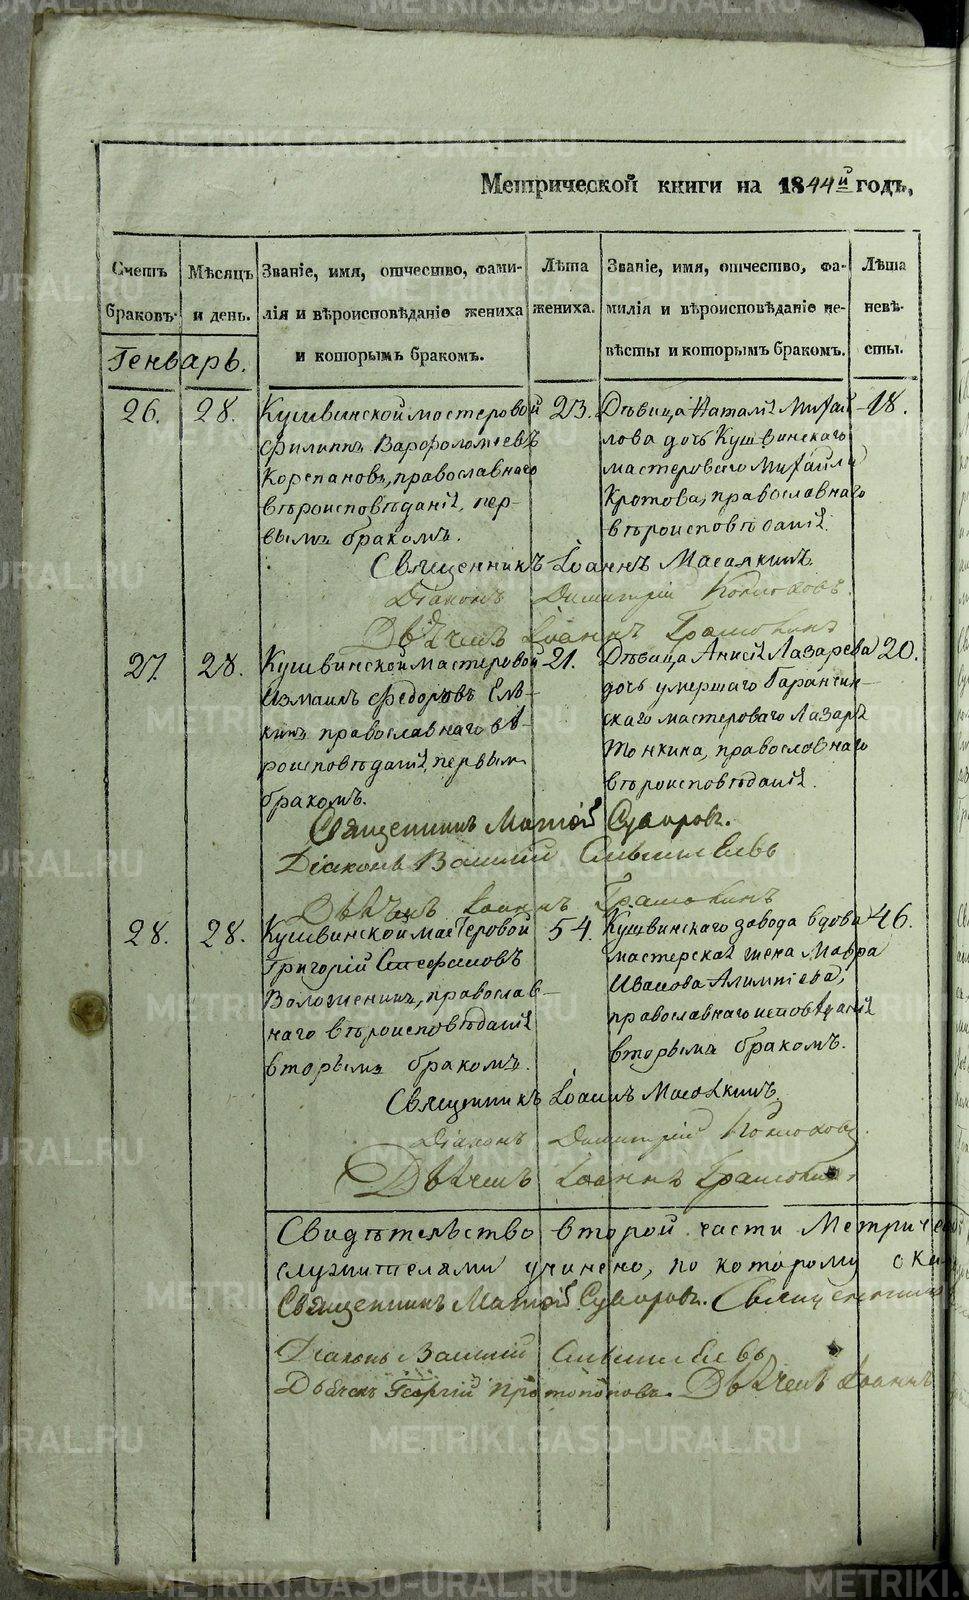 Метрической книги на 1844й годъ,
Счетъ браковъ. Мѣсяцъ и день. Званіе, имя, отчество, фамилія и вѣроисповѣданіе жениха и которымъ бракомъ. Лѣта жениха. Званіе, имя, отчество, фамилія и вѣроисповѣданіе невѣсты и которымъ бракомъ. Лѣта невѣсты.
Генварь.
26. 28.
Кушвинской мастеровой
Филиппъ Варфоломѣевъ
Корепановъ, православнаго
вѣроисповѣданія, пер-
вымъ бракомъ.
23.
Дѣвица Наталія Михай-
лова дочь Кушвинскаго
мастероваго Михайла
Кротова, православнаго
вѣроисповѣданія.
18.
Священникъ Іоаннъ
Діаконъ Димитрій
Дьячекъ Іоаннъ
27. 28.
Кушвинской мастеровой
Измаилъ Федоровъ Елъ-
кинъ православнаго вѣ-
роисповѣданія, первым
бракомъ.
21.
Дѣвица Анисія Лазарева
дочь умершаго Баранчин-
скаго мастероваго Лазаря
Тонкина, православнаго
вѣроисповѣданія.
20.
Священникъ Матѳій Суворовъ.
Діаконъ Василий
Дьячекъ Іоаннъ
28. 28.
Кушвинской мастеровой
Григорій Стефановъ
Воложенинъ, православ-
наго вѣроисповѣданія
вторымъ бракомъ.
54.
Кушвинскаго завода вдова
мастерская жена Мавра
Иванова Алимпіева,
православнаго исповѣданія
вторымъ бракомъ.
46.
Священникъ Іоаннъ
Діаконъ Димитрій
Дьячекъ Іоаннъ
Свидѣтельство второй части Метричес
служителями учинено, по которому ока
Священникъ Матѳій Суворовъ. Священникъ
Діаконъ Василий
Дьячекъ Георгій Протопоповъ. Дьячекъ Іоаннъ
METRIKI.GASO-URAL.RU